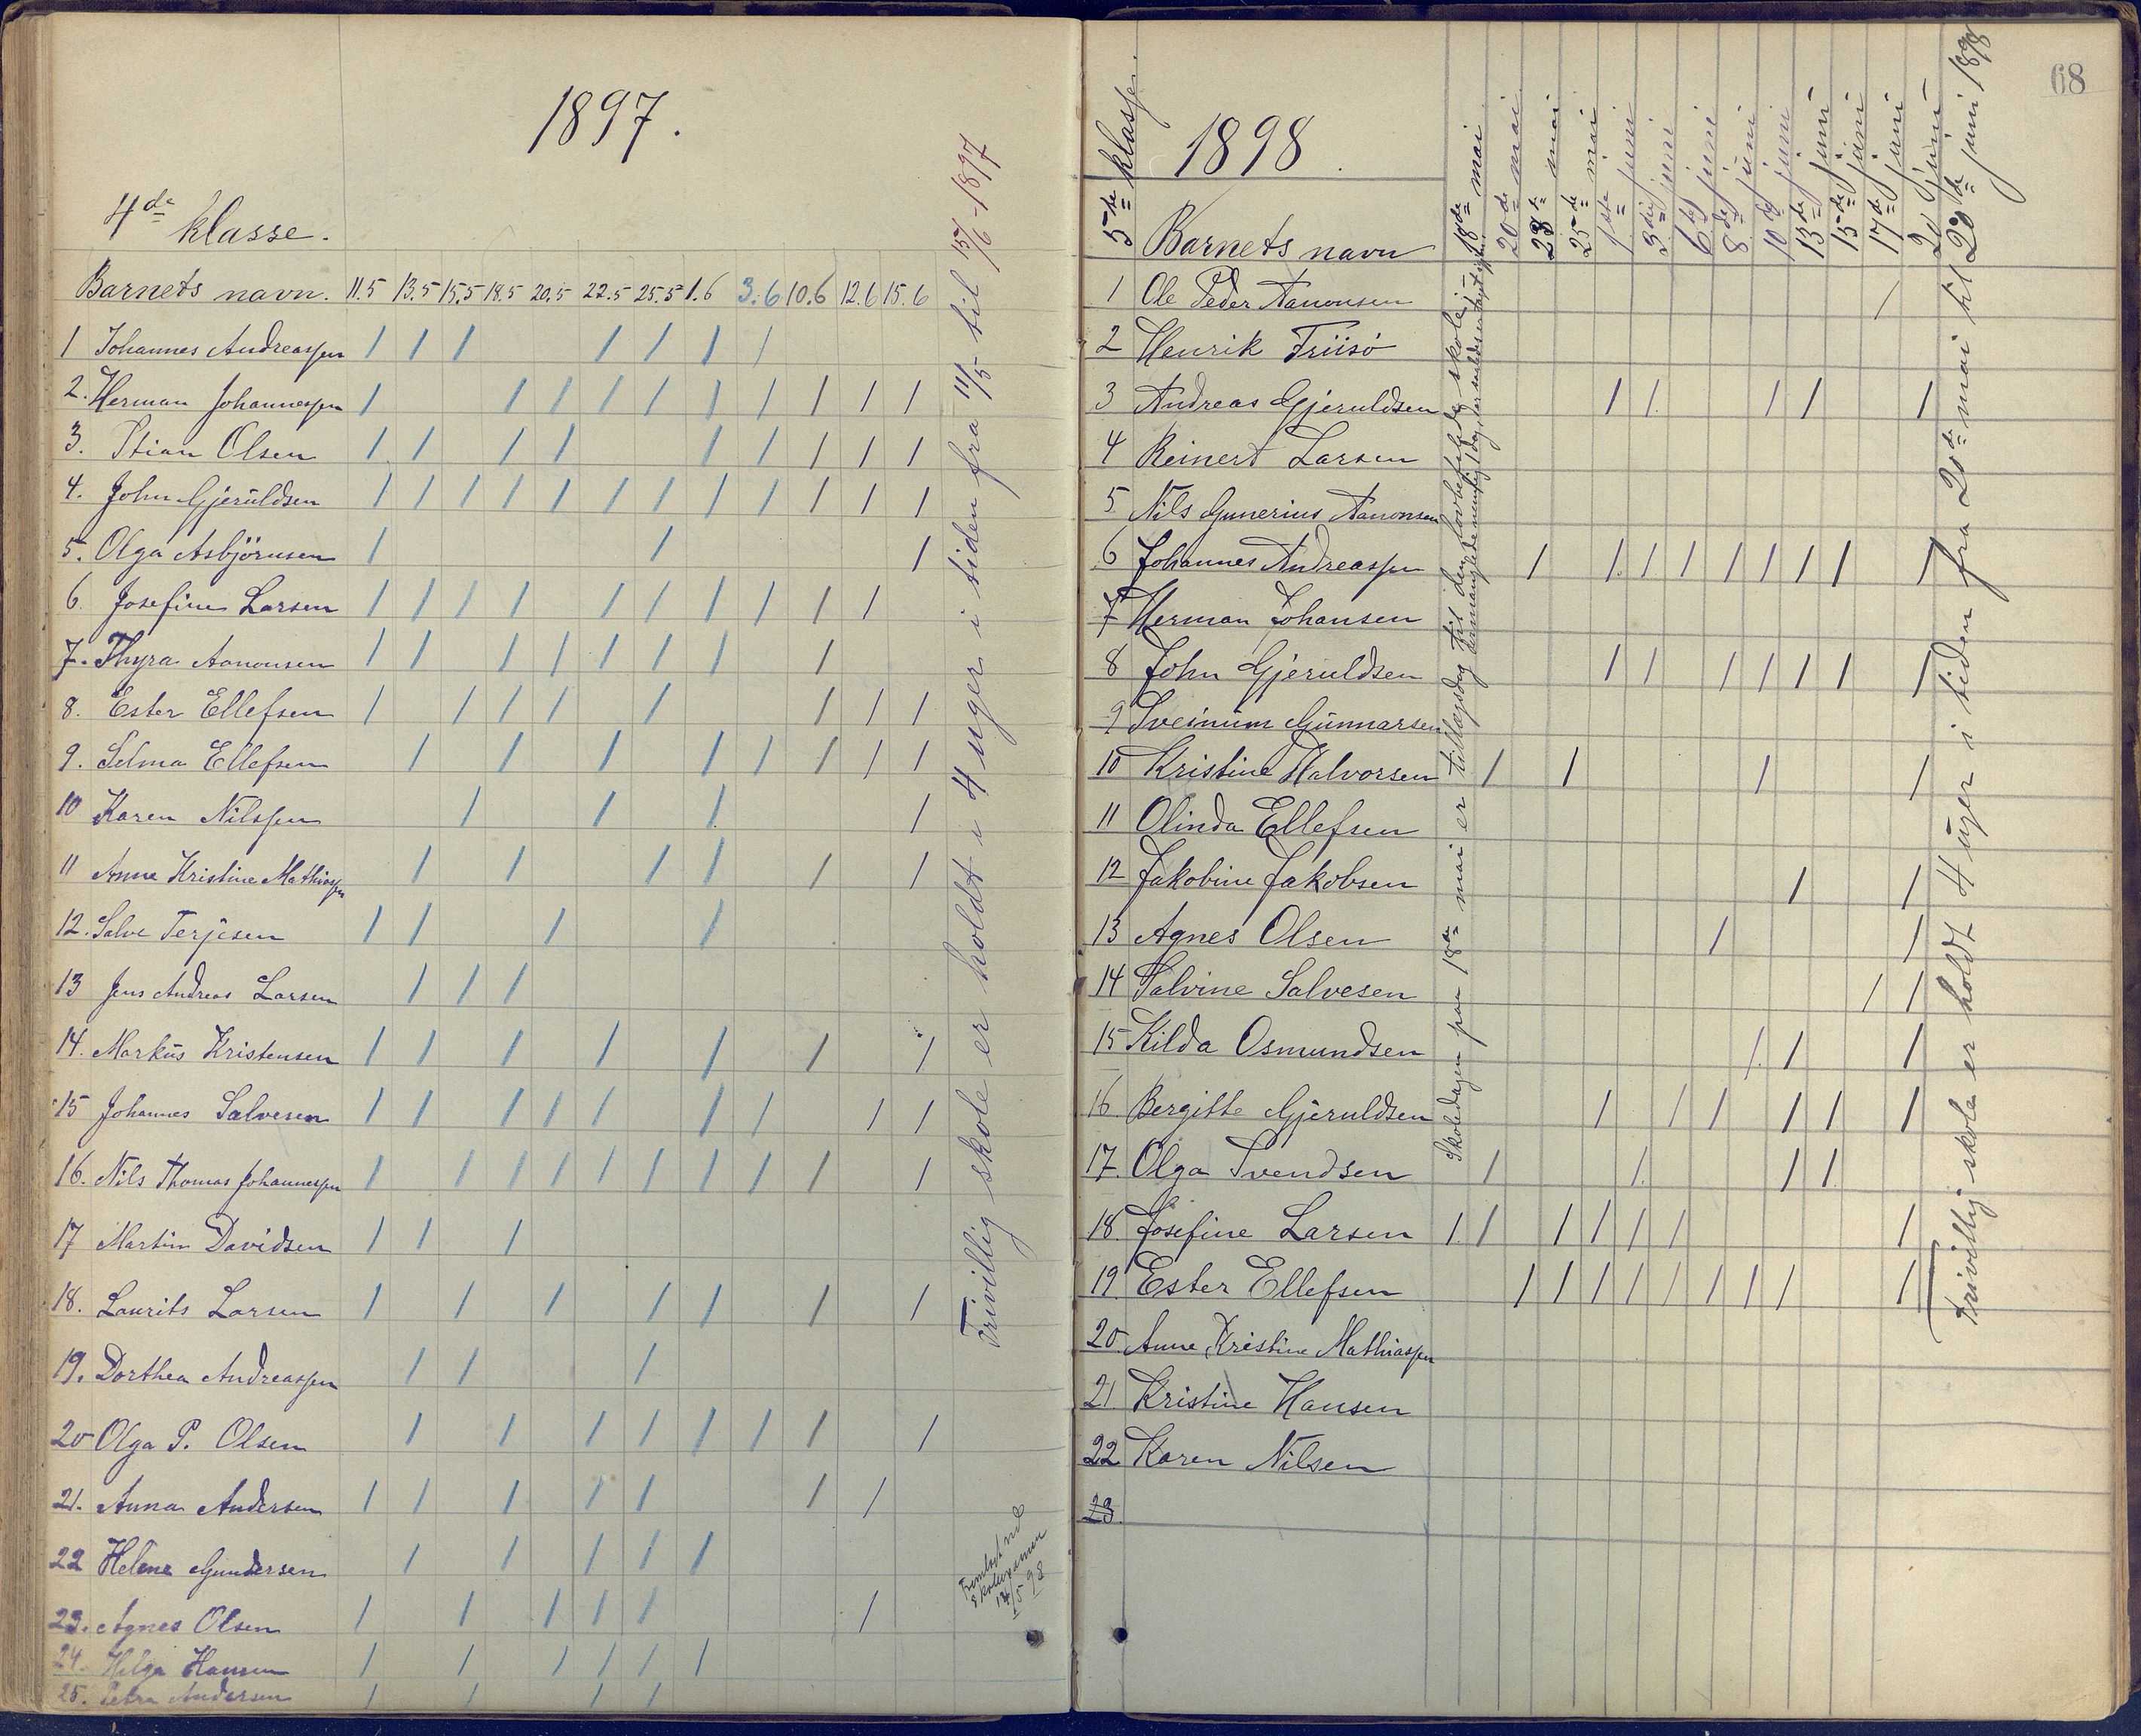 1897.
4de klasse.
Barnets navn. 11.5 13.5 15.5 18.5 20.5 22.5 25.5 1.6 3.6 10.6 12.6 15.6
1 Johannes Andreassen / / / / / / /
2. Herman Johannessen / / / / / / / / / / /
3. Stian Olsen / / / / / / / / /
4. John Gjeruldsen / / / / / / / / / / / /
5. Olga Asbjörnsen / / /
6. Josefine Larsen / / / / / / / / / /
7. Thyra Aanonsen / / / / / / / /
8. Ester Ellefsen / / / / / / / /
9. Selma Ellefsen / / / / / / / /
10 Karen Nilssen / / / /
11 Anne Kristine Mathiassen / / / / / /
12. Salve Terjesen / / / /
13 Jens Andreas Larsen / / /
14. Markus Kristensen / / / / / / /
15 Johannes Salvesen / / / / / / / / /
16. Nils Thomas Johannessen / / / / / / / / / /
17 Martin Davidsen / / /
18. Laurits Larsen / / / / / / /
19. Dorthea Andreassen / / /
20 Olga P. Olsen / / / / / / / /
21. Anna Andersen / / / / / / /
22 Helene Gundersen / / / / /
23. Agnes Olsen / / / / / /
24. Helga Hansen / / / / / /
25. Petra Andersen / / / /
Frivillig skole er holdt i 4 uger i tiden fra 11/5 til 15/6 - 1897
Fremlagt ved
5 98
68
5te klasse.
1898.
Barnets navn
18de mai
20de mai
23de mai
25de mai
1ste juni
3die juni
6te juni
8de juni
10de juni
13de juni
15de juni
17de juni
20 juni
1 Ole Peder Aanonsen /
2 Henrik Friisö
3 Andreas Gjeruldsen / / / / /
4 Reinert Larsen
5 Nils Gunerius Aanonsen
6 Johannes Andreassen / / / / / / / / /
7 Herman Johansen
8 John Gjeruldsen / / / / / / /
9 Sveinum Gunnarsen
10 Kristine Halvorsen / / / /
11 Olinda Ellefsen
12 Jakobine Jakobsen / /
13 Agnes Olsen / /
14 Salvine Salvesen / /
15 Kilda Osmundsen / / /
16. Bergitte Gjeruldsen / / / / / /
17. Olga Svendsen / / / /
18. Josefine Larsen / / / / / / /
19. Ester Ellefsen / / / / / / / / /
20. Anne Kristine Mathiassen
21 Kristine Hansen
22 Karen Nilsen
23.
Skoledagen paa 18de mai er tillægsdag til den lovbefalede skole
Frivillig skole er holdt 4 uger i tiden fra 20de mai til 20de juni 1898